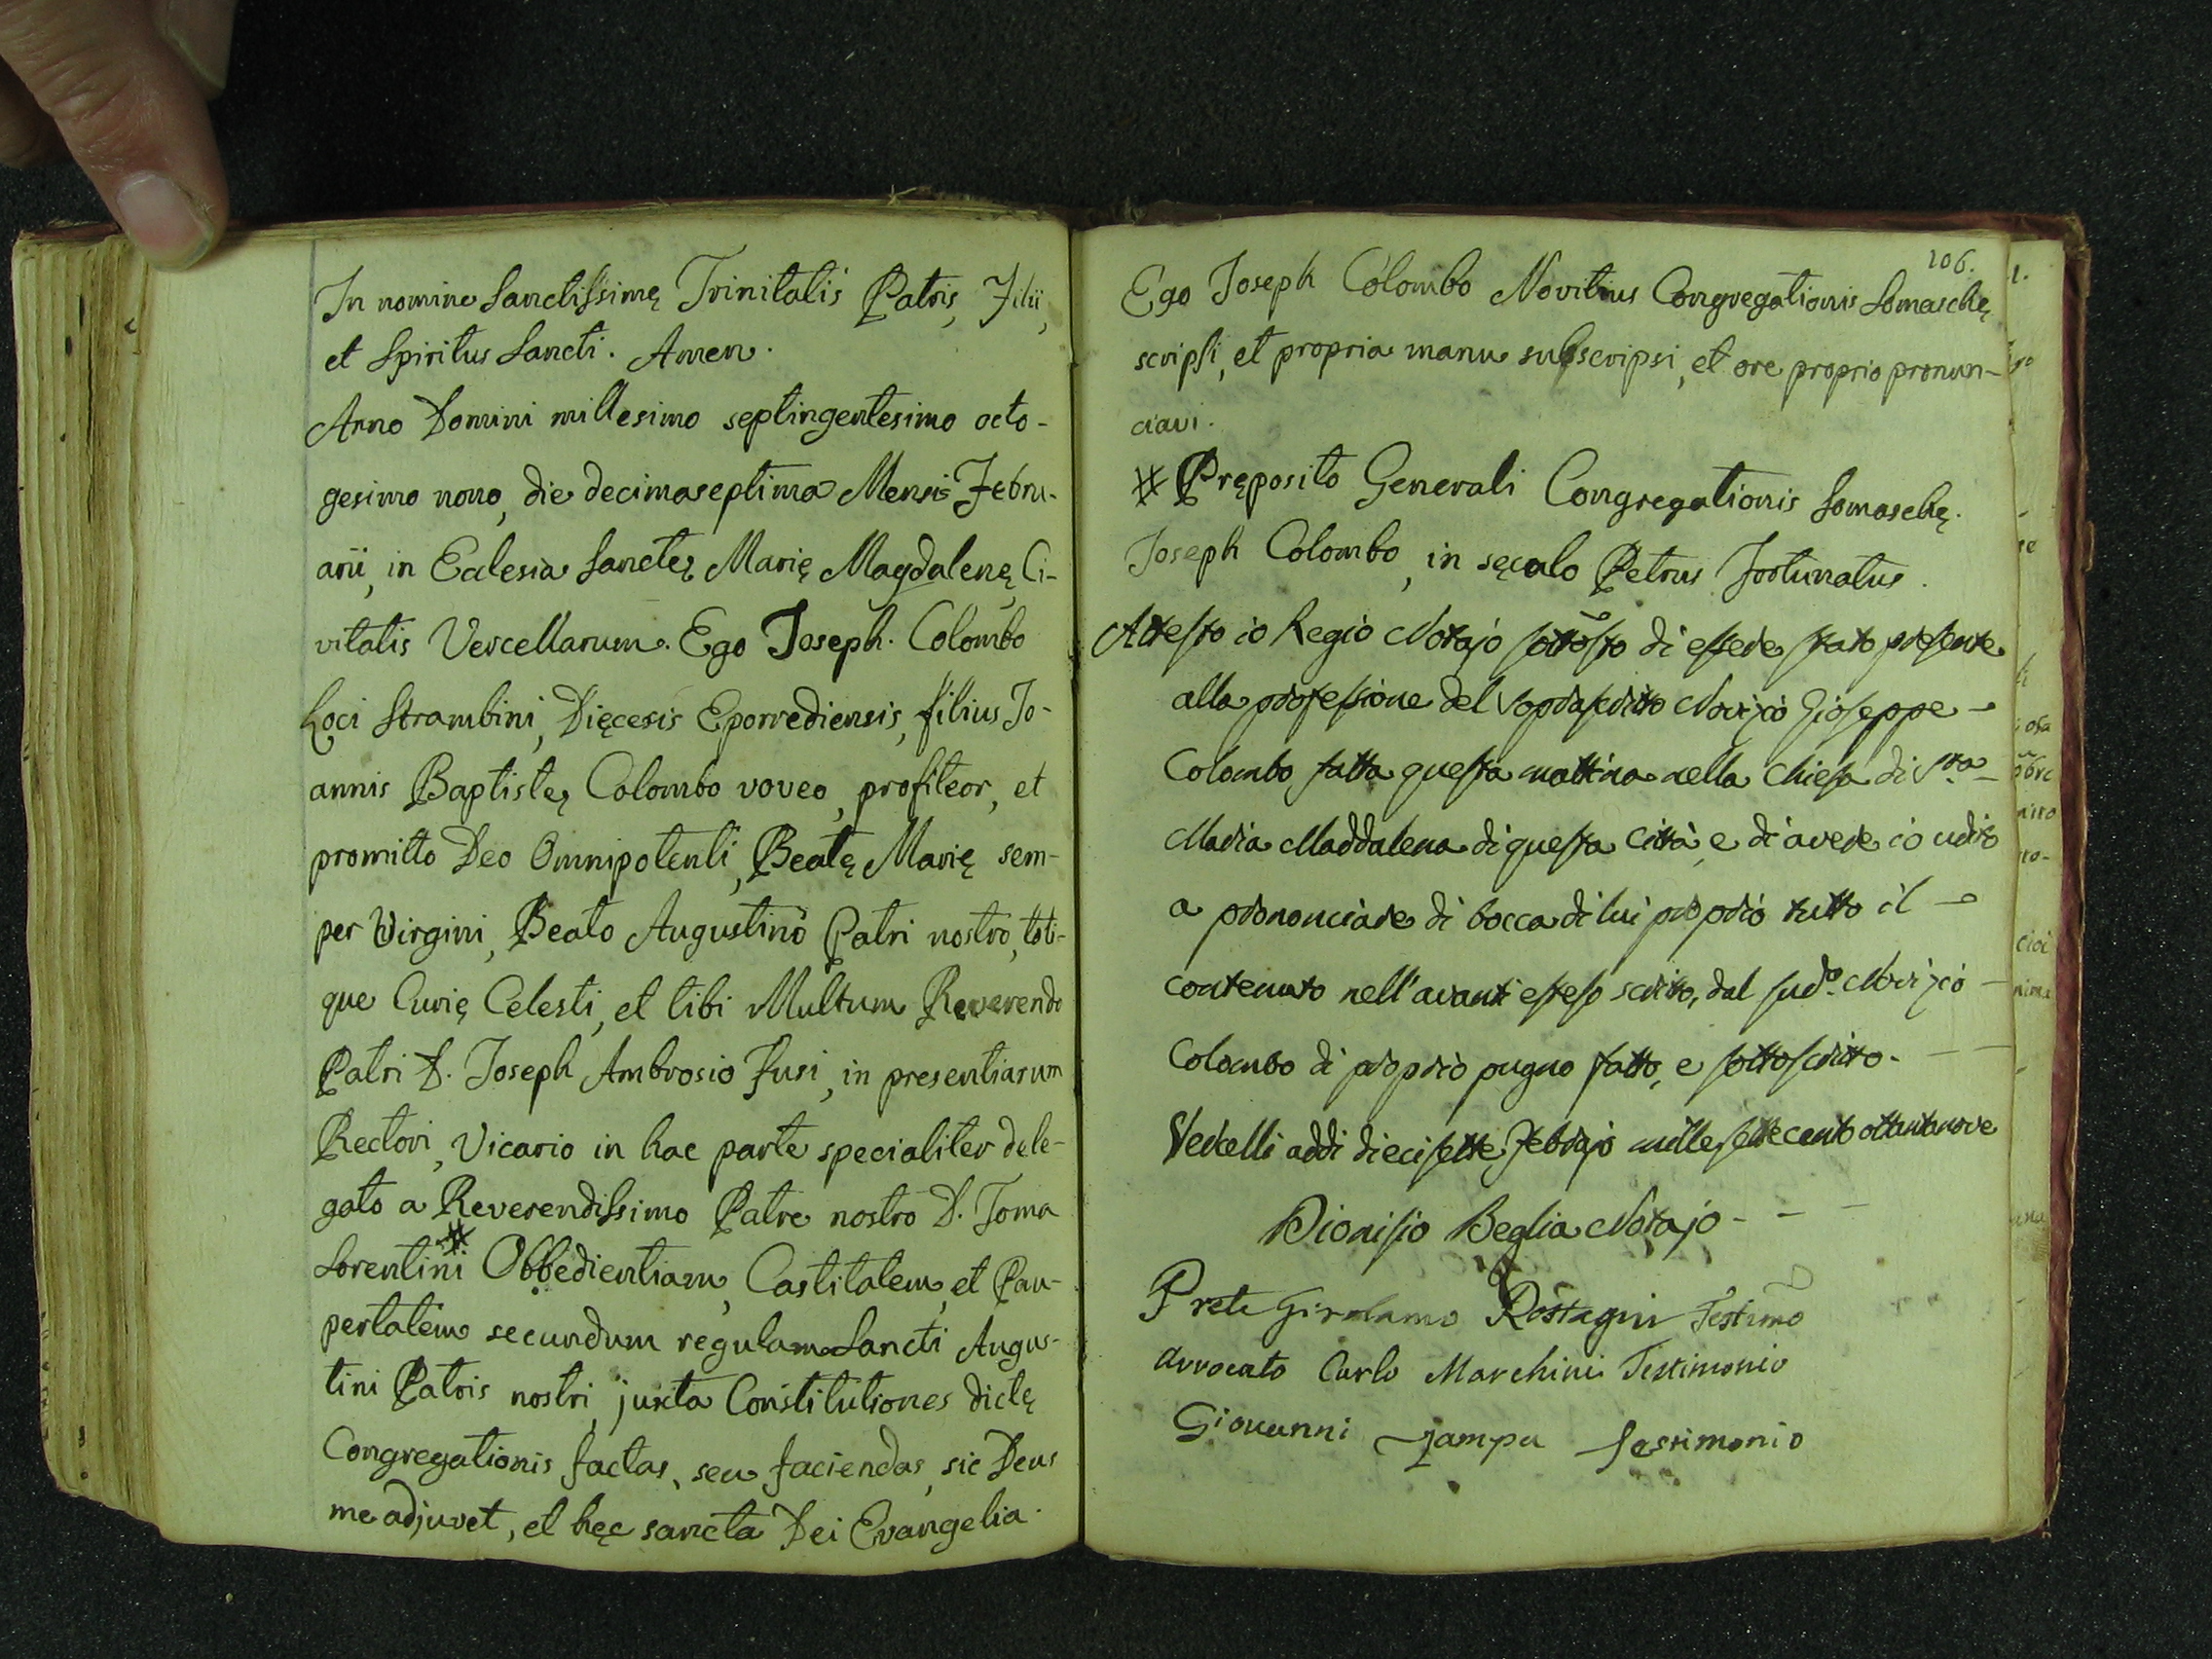 In nomine Sanctissimę Trinitatis Patris, Filii,
et Spiritus Sancti. Amen.
Anno Domini millesimo septingentesimo octo-
gesimo nono, die decimaseptima Mensis Febru-
arii, in Eclesia Sanctę Marię Magdalenę, Ci-
vitatis Vercellarum. Ego Joseph Colombo
Loci Strambini, Dięcesis Eporrediensis, filius Jo-
annis Baptistę Colombo voveo, profiteor, et
promitto Deo Omnipotenti, Beatę Marię sem-
per Virgini, Beato Augustino Patri nostro, toti-
que Curię Celesti, et tibi Multum Reverendo
Patri D. Joseph Ambrosio Fusi, in presentiarum
Rectori, Vicario in hac parte specialiter dele-
gato a Reverendissimo Patre nostro D. Toma
Lorentini # Obbedientiam, Castitatem, et Pau-
pertatem secundum regulam Sancti Augus-
tini Patris nostri, juxta Constitutiones dictę
Congregationis factas, seu faciendas, sic Deus
me adjuvet, et hęc sancta Dei Evangelia.
106.
Ego Joseph Colombo Novitius Congregationis Somaschę
scripsi, et propria manu subscripsi, et ore proprio pronun-
ciavi.
# Pręposito Generali Congregationis Somaschę.
Joseph Colombo, in sęcalo Petrus Fortunatus.
Attesto io Regio Notajo sottõsto di essere stato presente
alla professione del soprascritto Novizio Gioseppe
Colombo fatta questa mattina nella Chiesa di Sta
Maria Maddalena di questa Città, e di avere io udito
a prononciare di bocca di lui proprio tutto il
contenuto nell'avanti esteso scritto, dal sudo. Novizio
Colombo di proprio pugno fatto, e sottoscritto.
Vercelli addi diecisette Febrajo mille settecento ottantanove
Dionisio Beglia Notajo
Prete Girolamo Rostagni Testimõ
Avvocato Carlo Marchini Testimonio
Giovanni Zampa testimonio